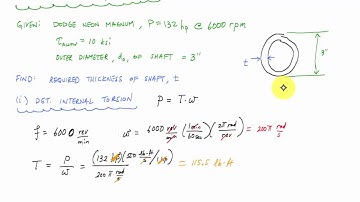 GIVEN: DODGE NEON MAGNUM, P = 132 hp @ 6000 rpm
τallow = 10 ksi
OUTER DIAMETER, do, OF SHAFT = 3"
FIND: REQUIRED THICKNESS OF SHAFT, t
(i) DET. INTERNAL TORSION P = T·ω
f = 6000 rev/min ω = 6000 rev/min (1 min/60 sec)(2π rad/rev) = 200π rad/s
T = P/ω = (132 hp)(550 lb·ft/s/hp)/200π rad/s = 115.5 lb·ft
t
3"